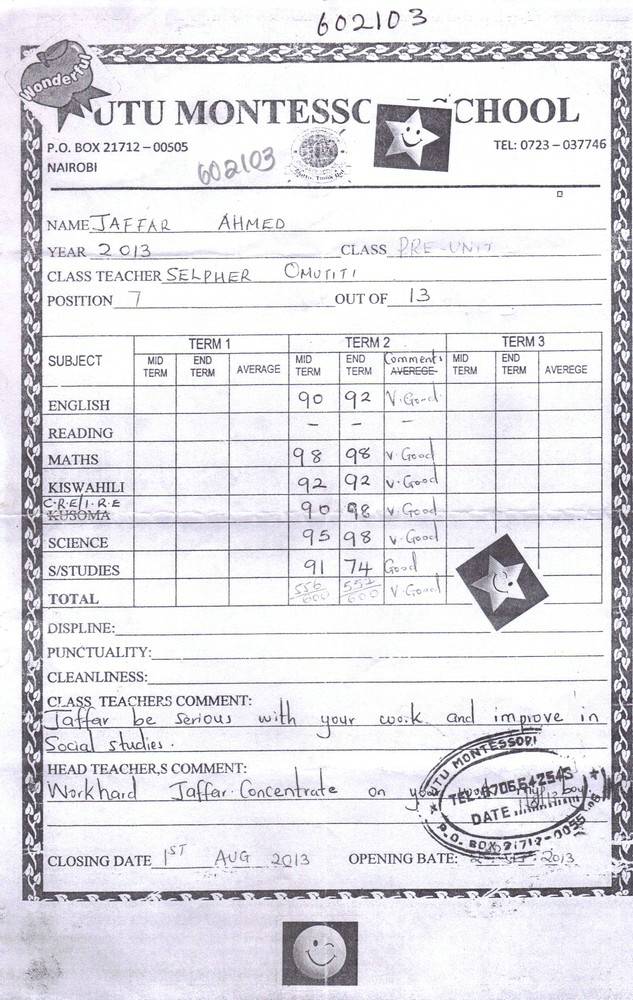 602103
Wonderful
UTU MONTESSO SCHOOL
P.O. BOX 21712 – 00505 TEL: 0723 – 037746
NAIROBI 602103
NAME JAFFAR AHMED
YEAR 2013 CLASS PRE-UNIT
CLASS TEACHER SELPHER OMUTITI
POSITION 7 OUT OF 13
TERM 1 TERM 2 TERM 3
SUBJECT MID TERM END TERM AVERAGE MID TERM END TERM Comments AVEREGE MID TERM END TERM AVEREGE
ENGLISH 90 92 V.Good
READING – – –
MATHS 98 98 V.Good
KISWAHILI 92 92 V.Good
C.R.E/I.R.E
KUSOMA 90 98 V.Good
SCIENCE 95 98 V.Good
S/STUDIES 91 74 Good
TOTAL 556/600 552/600 V.Good
DISPLINE:
PUNCTUALITY:
CLEANLINESS:
CLASS TEACHERS COMMENT:
Jaffar be serious with your work and improve in
Social studies.
HEAD TEACHER,S COMMENT:
Workhard Jaffar. Concentrate on your boy
UTU MONTESSORI
TEL: 0706542543
DATE
P.O. BOX 21712-00505
CLOSING DATE 1ST AUG 2013 OPENING BATE: 2013